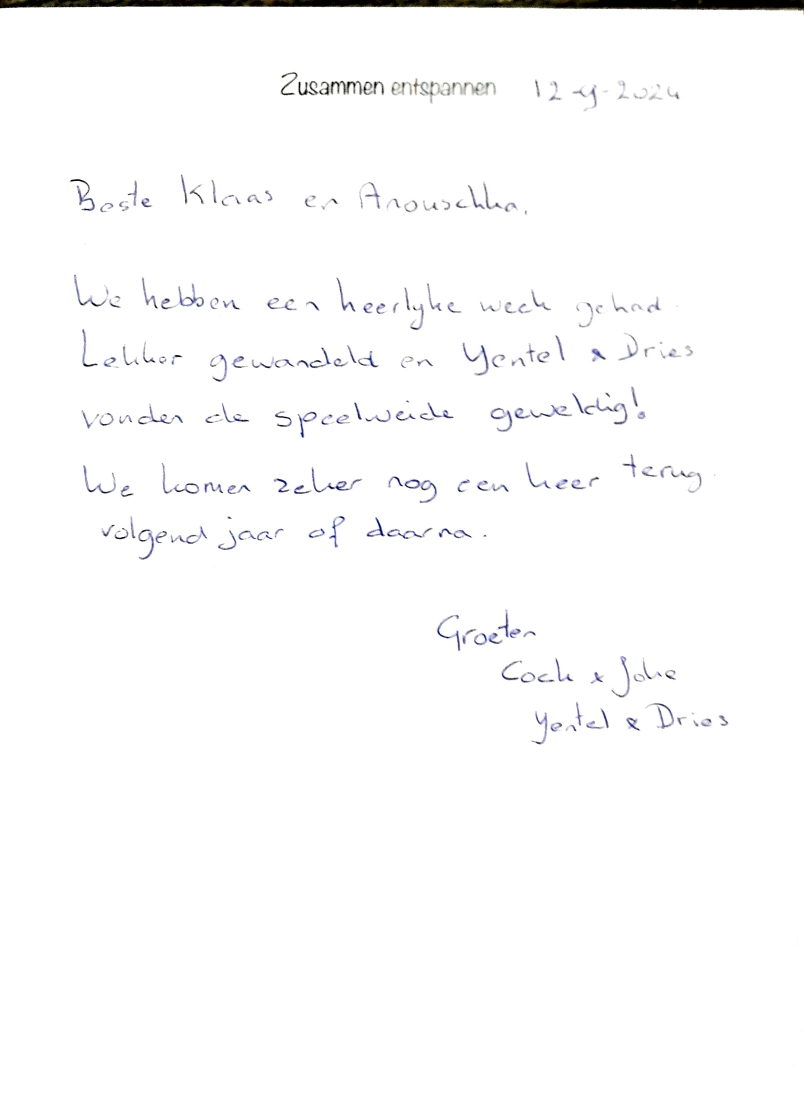 Zusammen entspannen 12-9-2024
Beste Klaas en Anouschka,
We hebben een heerlyke week gehad.
Lekker gewandeld en Yentel & Dries
vonden de speelweide geweldig!
We komen zeker nog een keer terug
volgend jaar of daarna.
Groeten
Cock & Joke
Yentel & Dries